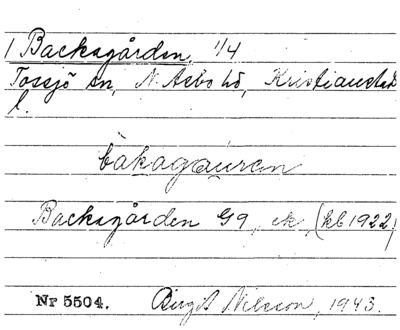 1 Backagården, 1/4
Tossjö sn, N. Åsbo hd, Kristianstad
l.
bakagauren
Backagården G9, ek, (kb 1922)
Nr 5504. Birgit Nilsson, 1943.